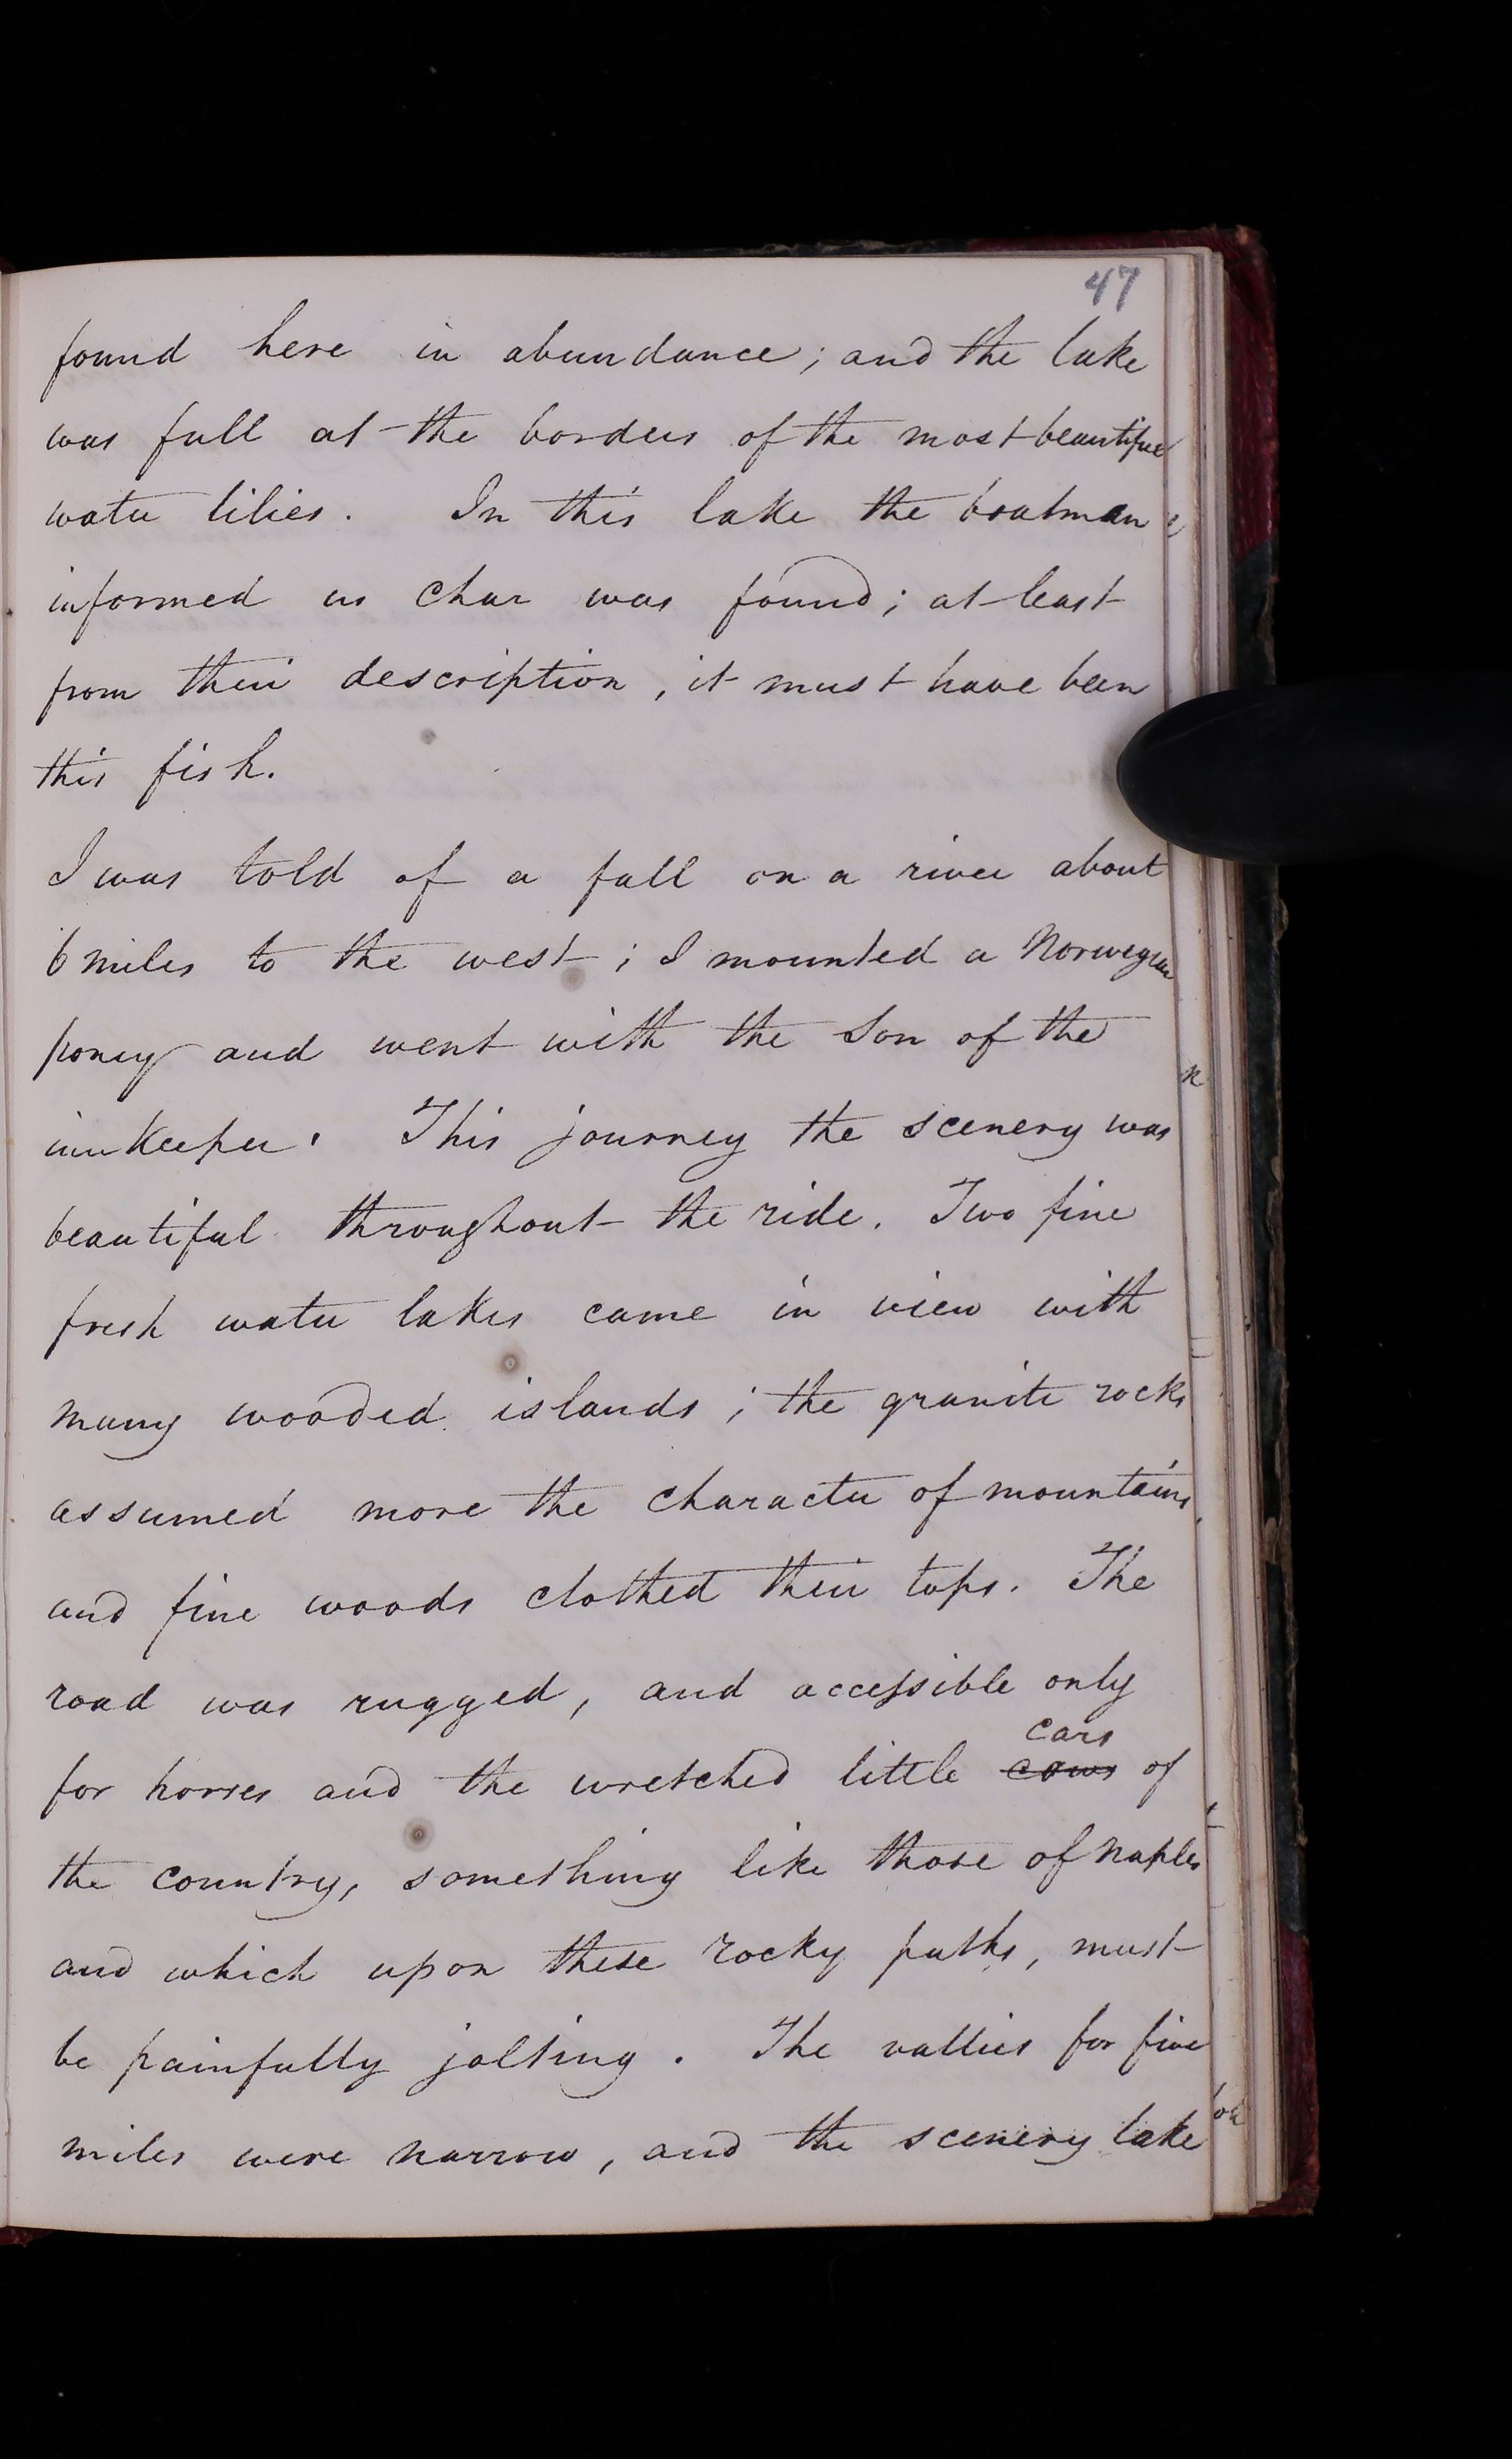 47
found here in abundance; and the lake
was full at the borders of the most beautiful
water lilies. In this lake the boatman
informed us char was found; at least
from their description, it must have been
this fish.
I was told of a fall on a river about
6 miles to the west; I mounted a Norwegian
poney and went with the son of the
innkeeper. This journey the scenery was
beautiful throughout the ride. Two fine
fresh water lakes came in view with
many wooded islands; the granite rocks
assumed more the character of mountains,
and fine woods clothed their tops. The
road was rugged, and accessible only
cars
for horses and the wretched little cows of
the country, something like those of Naples
and which upon these rocky paths, must
be painfully jolting. The vallies for five
miles were narrow, and the scenery lake